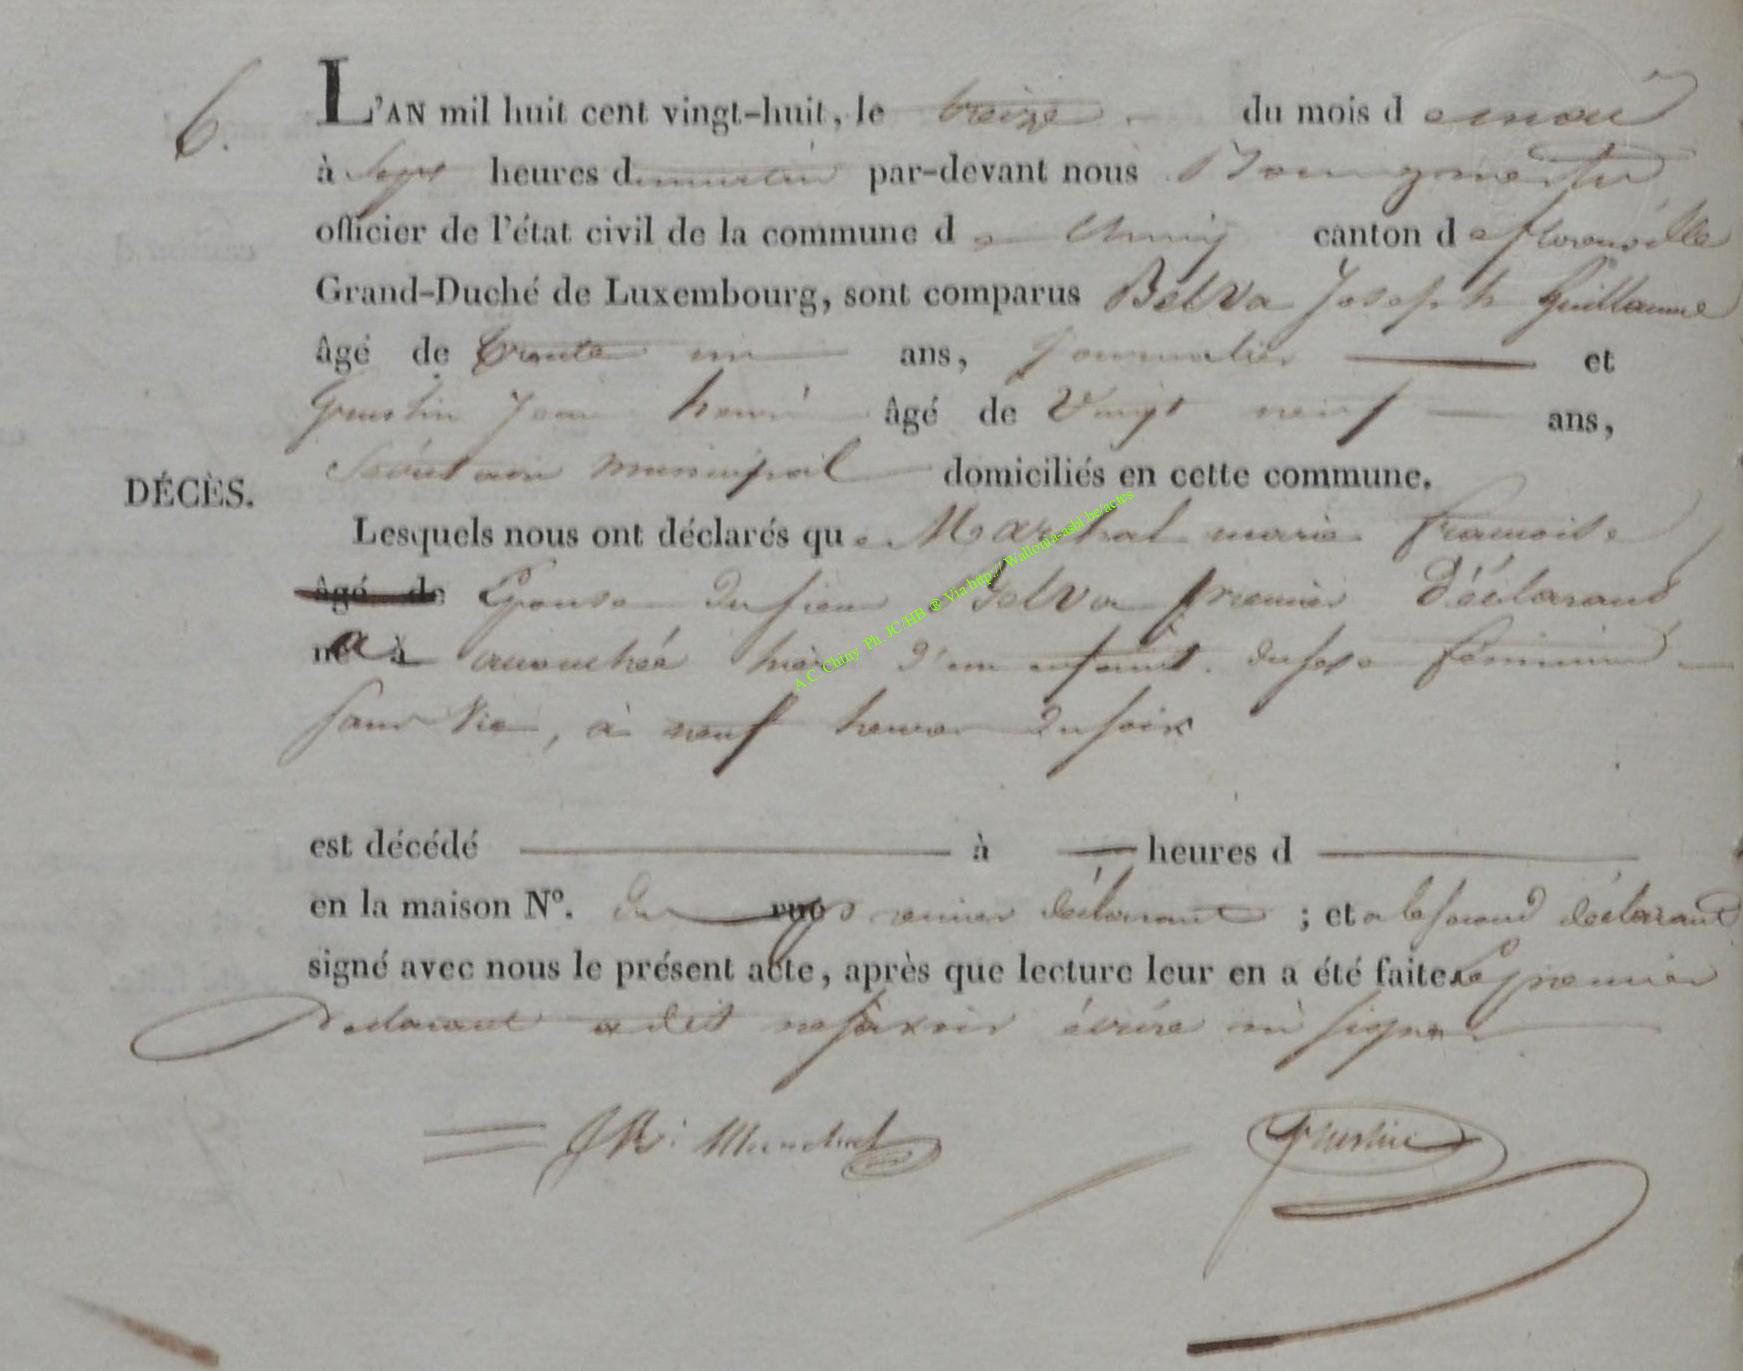 6.
L'AN mil huit cent vingt-huit, le treize du mois de mai
à sept heures du matin par-devant nous Bourgmestre
officier de l'état civil de la commune de Chiny canton de florenville
Grand-Duché de Luxembourg, sont comparus Belva Joseph Guillaume
âgé de trente un ans, Journalier et
Jean henri âgé de Vingt neuf ans,
Secrétaire municipal domiciliés en cette commune.
DÉCÈS.
Lesquels nous ont déclarés que Marchal marie francoise
âgé de Epouse du sieur Belva premier Déclarant
a accouchée hier d'un enfant du sexe féminin
sans vie, à neuf heures du soir
A C Chiny Ph. JC/HB ® Via http://Wallonia-asbl.be/actes
est décédé à heures d
en la maison N°. du premier déclarant ; et a le second déclarant
signé avec nous le présent acte, après que lecture leur en a été faite le premier
Déclarant a dit ne savoir écrire ni signer